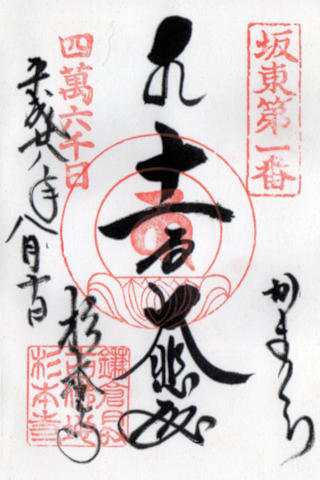 坂東第一番
かまくら
大悲殿
四萬六千日
平成廿八年八月十日
杉本寺
鎌倉最
古佛地
杉本寺